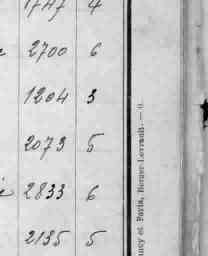 1747 4
2700 6
1204 3
2073 5
2833 6
2135 5
ncy et Paris, Berger-Levrault. — 6.